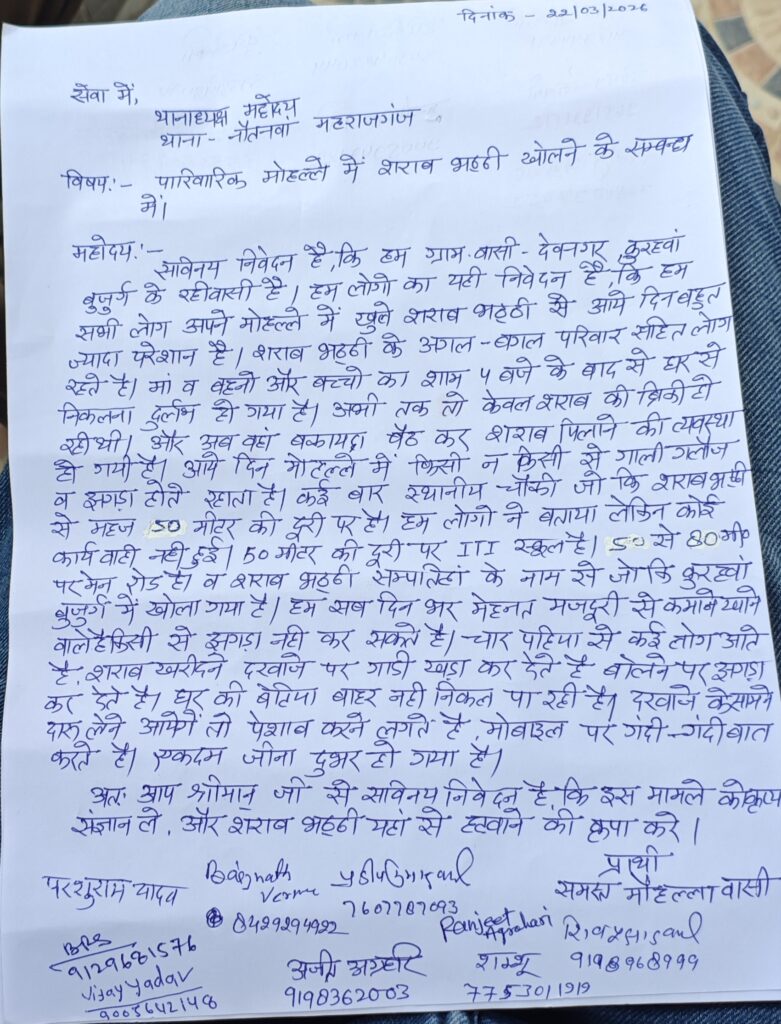 दिनांक - 22/03/2026
सेवा में,
थानाध्यक्ष महोदय
थाना - नौतनवा महराजगंज
विषय:- पारिवारिक मोहल्ले में शराब भट्ठी खोलने के सम्बन्ध
में।
महोदय:-
सविनय निवेदन है, कि हम ग्राम-वासी - देवनगर, कुरहवां
बुजुर्ग के रहीवासी है। हम लोगो का यही निवेदन है, कि हम
सभी लोग अपने मोहल्ले में खुले शराब भट्ठी से आये दिन बहुत
ज्यादा परेशान है। शराब भट्ठी के अगल-बगल परिवार सहित लोग
रहते है। मां व बहनो और बच्चो का शाम 4 बजे के बाद से घर से
निकलना दुर्लभ हो गया है। अभी तक तो केवल शराब की बिक्री हो
रही थी। और अब वहां बकायदा बैठ कर शराब पिलाने की व्यवस्था
हो गयी है। आये दिन मोहल्ले में किसी न किसी से गाली-गलौज
व झगड़ा होते रहता है। कई बार स्थानीय चौकी जो कि शराब भट्ठी
से महज 50 मीटर की दूरी पर है। हम लोगो ने बताया लेकिन कोई
कार्यवाही नही हुई। 50 मीटर की दूरी पर ITI स्कूल है। 50 से 80 मी०
पर मेन रोड है। व शराब भट्ठी के नाम से जो कि कुरहवां
बुजुर्ग में खोला गया है। हम सब दिन भर मेहनत मजदूरी से कमाने खाने
वाले है किसी से झगड़ा नही कर सकते है। चार पहिया से कई लोग आते
है, शराब खरीदने दरवाजे पर गाडी खड़ा कर देते है बोलने पर झगड़ा
कर देते है। घर की बेटिया बाहर नही निकल पा रही है। दरवाजे के सामने
दारू लेने आयेगें तो पेशाब करने लगते है, मोबाइल पर गंदी-गंदी बात
करते है। एकदम जीना दुभर हो गया है।
अतः आप श्रीमान् जी से सविनय निवेदन है, कि इस मामले को कृपया
संज्ञान ले, और शराब भट्ठी यहां से हटवाने की कृपा करे।
प्रार्थी
समस्त मोहल्ला वासी
परशुराम यादव
Baijnath
Verma
8429294922
7607787093
Ranjeet
Agrahari
9198968999
9129681576
Vijay Yadav
9005642148
अजीत अग्रहरि
9198362003
शम्भू
7753011919